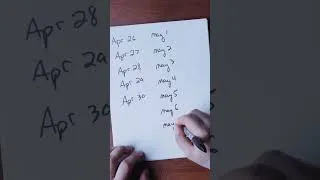 Apr 28
Apr 29
Apr 30
Apr 26
Apr 27
Apr 28
Apr 29
Apr 30
may 1
may 2
may 3
may 4
may 5
may 6
may